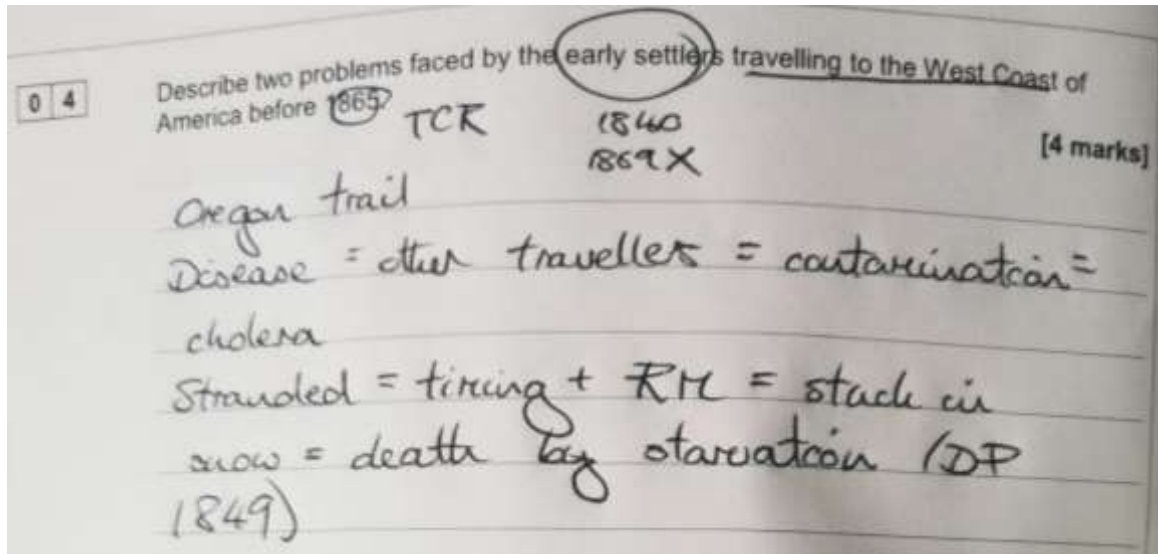 0 4
Describe two problems faced by the early settlers travelling to the West Coast of
America before 1865
[4 marks]
TCR
1840
1869 X
Oregon trail
Disease = other travellers = contamination =
cholera
Stranded = timing + RM = stuck in
snow = death by starvation (DP
1849)